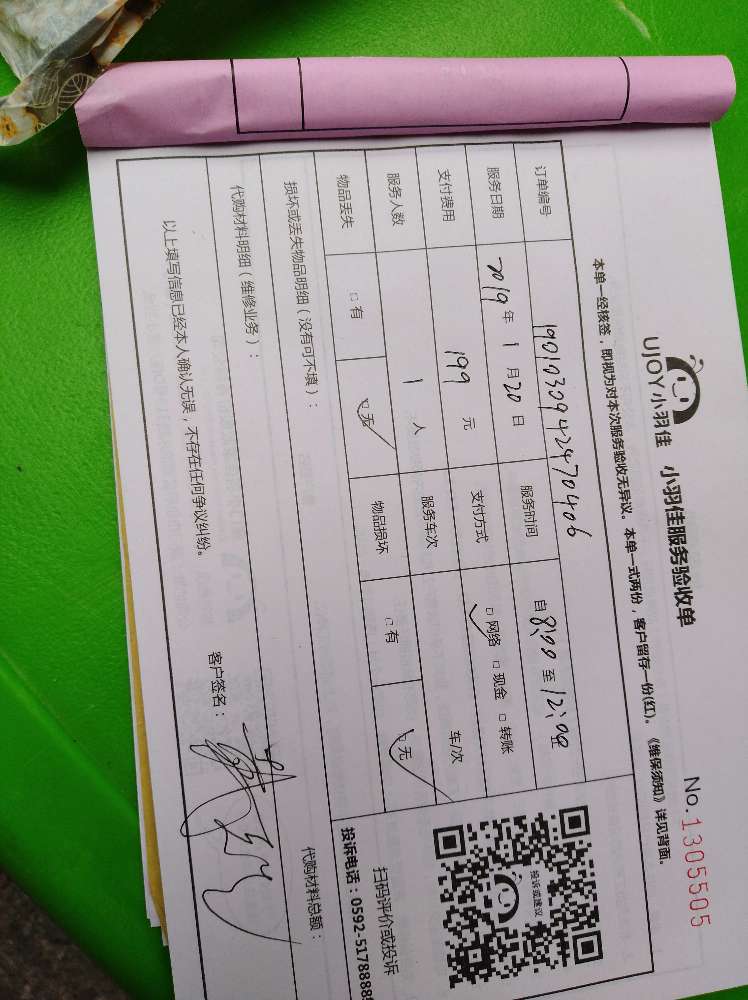 UJOY小羽佳 小羽佳服务验收单
No.1305505
本单一经核签，即视为对本次服务验收无异议。本单一式两份，客户留存一份(红)。《维保须知》详见背面。
订单编号 1901030942470406
服务日期 2019年1月20日 服务时间 自8:00至12:00
支付费用 199元 支付方式 □网络 □现金 □转账
服务人数 1人 服务车次 车/次
物品丢失 □有 □无 物品损坏 □有 □无
损坏或丢失物品明细（没有可不填）：
代购材料明细（维修业务）：
代购材料总额：
以上填写信息已经本人确认无误，不存在任何争议纠纷。
客户签名：
投诉或建议
扫码评价或投诉
投诉电话：0592-5178888